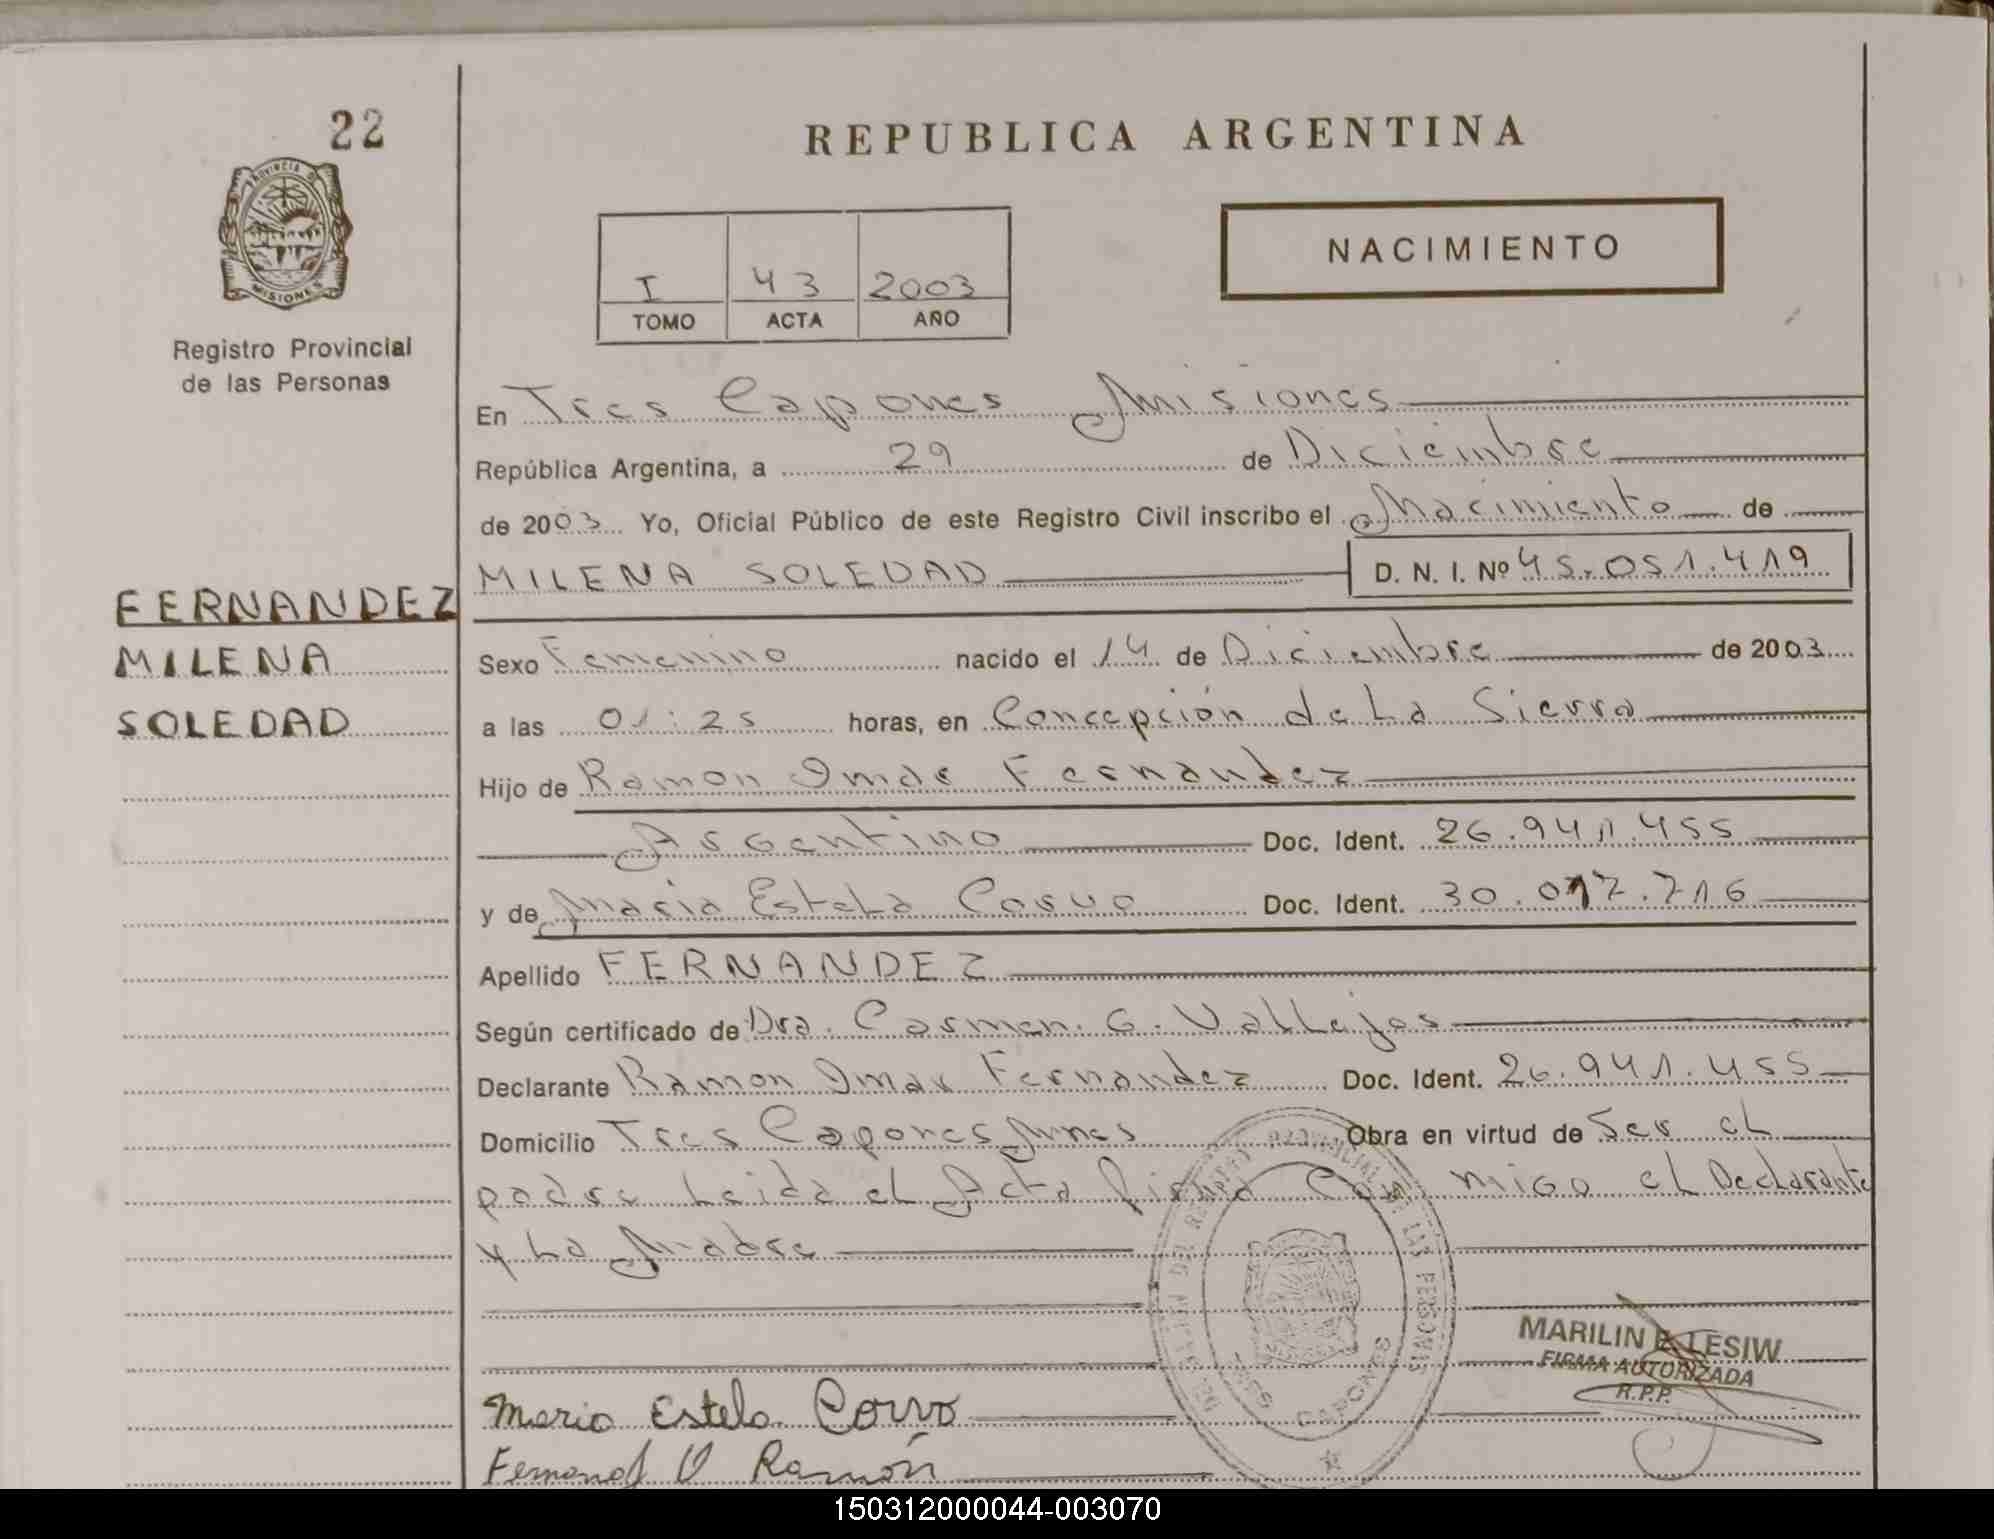 22
PROVINCIA DE
MISIONES
Registro Provincial
de las Personas
REPUBLICA ARGENTINA
NACIMIENTO
I 43 2003
TOMO ACTA AÑO
En Tres Capones Misiones
República Argentina, a 29 de Diciembre
de 2003 Yo, Oficial Público de este Registro Civil inscribo el Nacimiento de
MILENA SOLEDAD D. N. I. Nº 45.051.419
FERNANDEZ
MILENA
SOLEDAD
Sexo Femenino nacido el 14 de Diciembre de 2003
a las 01:25 horas, en Concepción de La Sierra
Hijo de Ramon Omar Fernandez
Argentino Doc. Ident. 26.941.455
y de Maria Estela Corvo Doc. Ident. 30.017.716
Apellido FERNANDEZ
Según certificado de Dra. Carmen. G. Vallejos
Declarante Ramon Omar Fernandez Doc. Ident. 26.941.455
Domicilio Tres Capones Mnes Obra en virtud de Ser el
padre Leida el Acta firma Con migo el Declarante
y La Madre
TRES CAPONES
MARILIN E. LESIW
FIRMA AUTORIZADA
R.P.P.
Maria Estela Corvo
Ramón
150312000044-003070